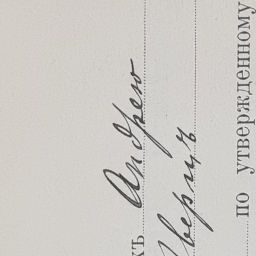 хъ Андрею
Зверлцъ
по утвержденному